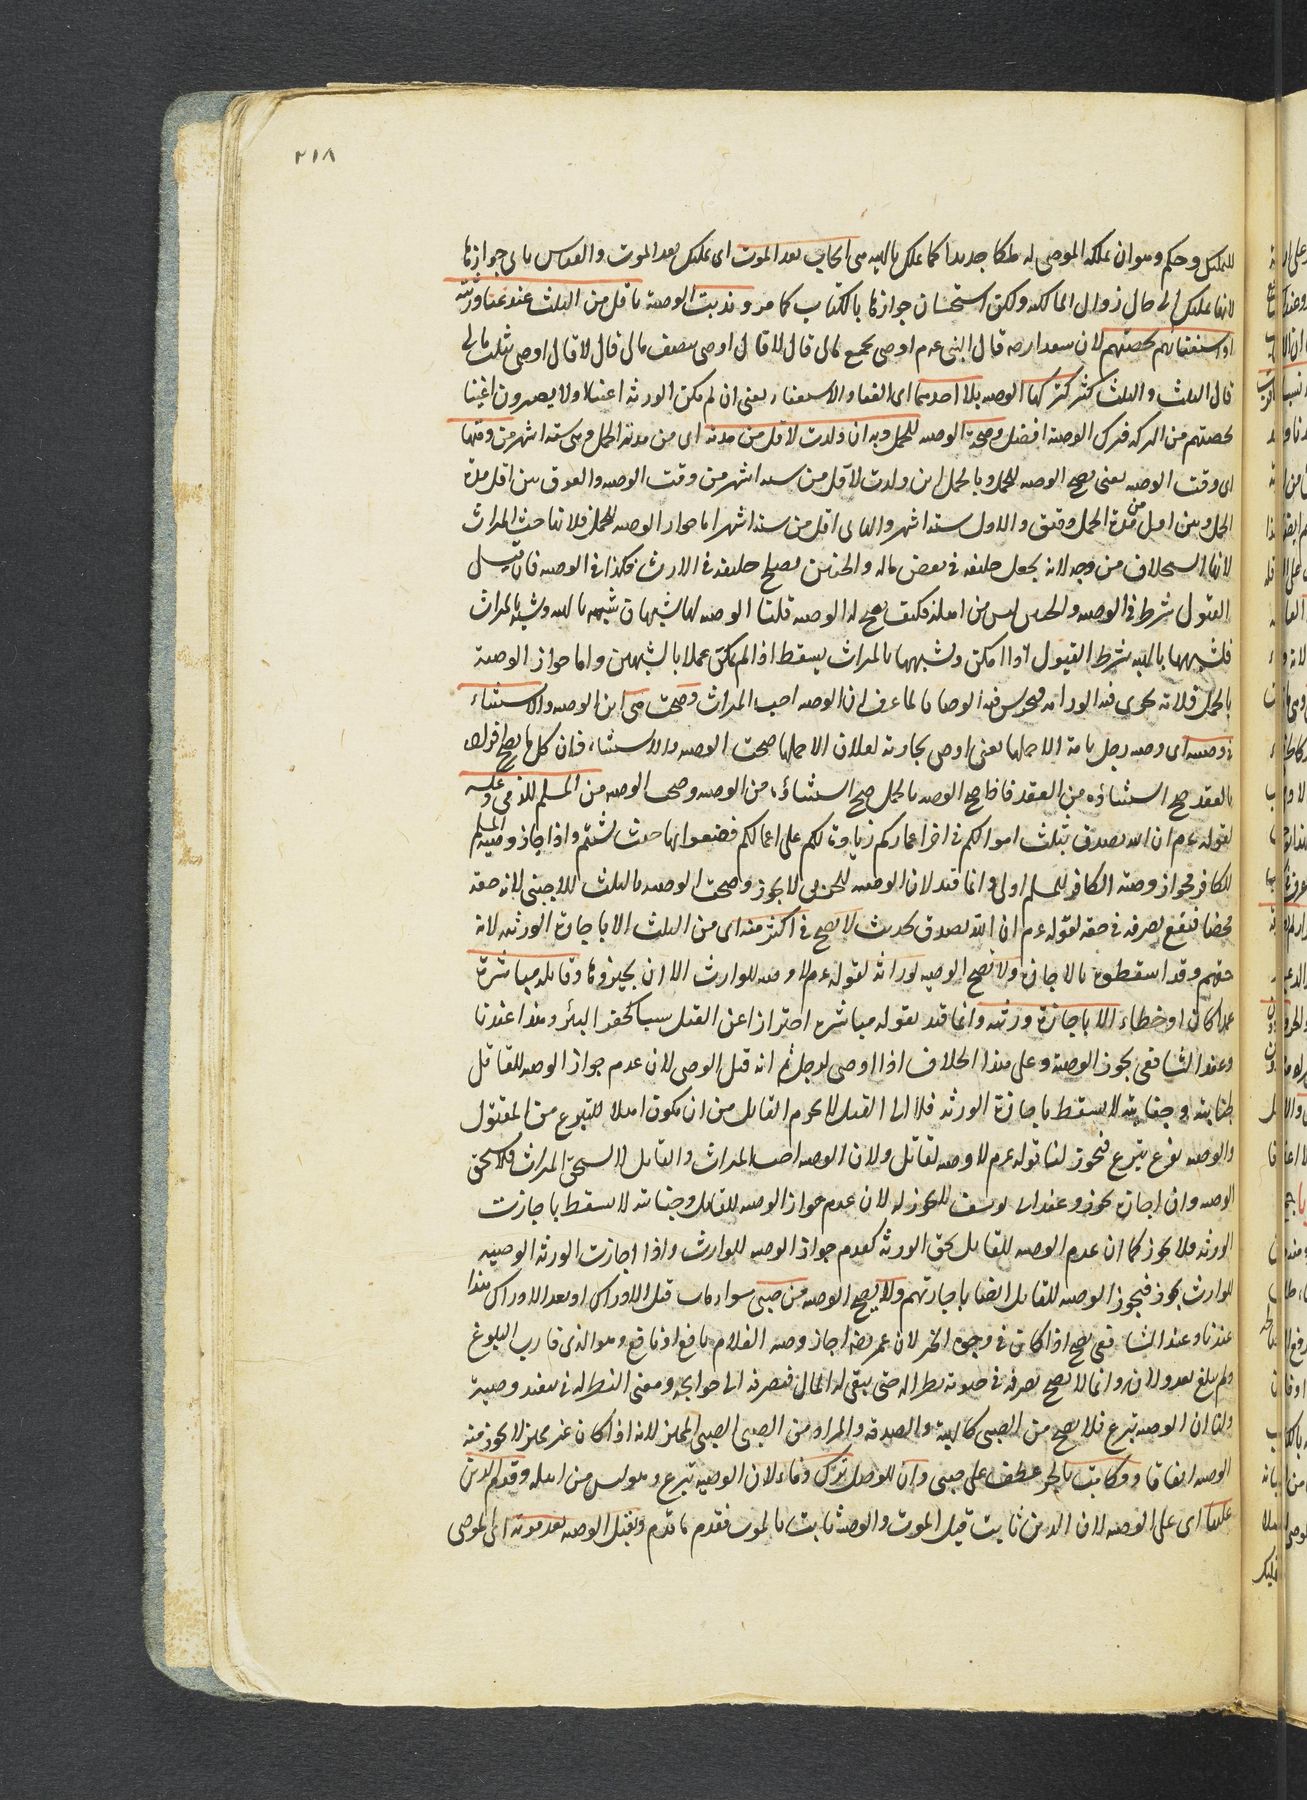 ٢١٨
للتمليك وحكم وهو ان يملكه الموصى له ملكا جديدا كما يملك بالهبة هى ايجاب بعد الموت اى تمليك بعد الموت والقياس يابى جوازها
لانها تمليك الى حال زوال المالكية ولكن استحسان جوازها بالكتاب كما مر وندبت الوصية باقل من الثلث عند غنا ورثته
او استغنائهم بحصتهم لان سعدا رضه قال النبى عم اوصى بجميع مالى قال لا قال اوصى بنصف مالى قال لا قال اوصى بثلث مالى
قال الثلث والثلث كثير كتركها الوصية بلا احدهما اى الغناء والاستغناء يعنى ان لم يكن الورثة اغنياء ولا يصيرون اغنياء
بحصتهم من التركة فترك الوصية افضل وصحة الوصية للحمل وبه ان ولدت لاقل من مدته اى من مدة الحمل وهى ستة اشهر من وقتها
اى وقت الوصية يعنى يصح الوصية للحمل وبالحمل ان ولدت لاقل من ستة اشهر من وقت الوصية والفرق بين اقل مدة
الحمل وبين اقل من مدة الحمل وقيق والاول ستة اشهر والثانى اقل من ستة اشهر اما جواز الوصية للحمل فلانها اخت الميراث
لانها استخلاف من وجه لانه يجعل خليفة فى بعض ماله والجنين يصلح خليفة فى الارث فكذا فى الوصية فان قيل
القبول شرط فى الوصية والجنين ليس من اهله فكيف يصح له الوصية قلنا الوصية لها شبهان شبه بالهبة وشبه بالميراث
فلشبهها بالهبة شرط القبول اذا امكن ولشبهها بالميراث يسقط اذا لم يمكن عملا بالشبهين واما جواز الوصية
بالحمل فلانه يجرى فيه الوراثة فيجرى فيه الوصايا لما عرف ان الوصية اخت الميراث وصحت هى اى الوصية والاستثناء
فى وصية اى وصية رجل بامة الا حملها يعنى اوصى بجارية لفلان الا حملها صحت الوصية والاستثناء فان كل ما يصح افراده
بالعقد صح استثناؤه من العقد فاذا صح الوصية بالحمل صح استثناؤه من الوصية وصحت الوصية من المسلم للذمى وعكسه
لقوله عم ان الله تصدق بثلث اموالكم فى اخر اعماركم زيادة لكم على اعمالكم فضعوا بها حيث شئتم واذا جاز وصية المسلم
للكافر فجواز وصية الكافر للمسلم اولى وانما قيد لان الوصية للحربى لا يجوز وصحت الوصية بالثلث للاجنبى لانه حقه
محضا فنفع تصرفه فى حقه لقوله عم ان الله تصدق بحديث لا يصح فى اكثر منه اى من الثلث الا باجازة الورثة لانه
حقهم وقد اسقطوه بالاجازة ولا يصح الوصية لوارثه لقوله عم لا وصية للوارث الا ان يجيزوها وقاتله مباشرة
عمدا كان او خطاء الا باجازة ورثته وانما قيد بقوله مباشرة احترازا عن القتل سببا كحفر البئر وهذا عندنا
وعند الشافعى يجوز الوصية وعلى هذا الخلاف اذا اوصى لرجل ثم انه قتل الموصى لان عدم جواز الوصية للقاتل
لجنايته وجنايته لا يسقط باجازة الورثة
والوصية نوع تبرع فيجوز لنا قوله عم لا وصية لقاتل ولان الوصية اخت الميراث والقاتل لا يستحق الميراث فلا يستحق
الوصية وان اجازه يجوز وعند ابى يوسف لا يجوز له لان عدم جواز الوصية للقاتل جنايته لا يسقط باجازت
الورثة فلا يجوز كما ان عدم الوصية للقاتل بحق الورثة كعدم جواز الوصية للوارث واذا اجازت الورثة الوصية
للوارث يجوز فيجوز الوصية للقاتل ايضا باجازتهم ولا يصح الوصية من صبى سواء مات قبل الادراك او بعد الادراك هذا
عندنا وعند الشافعى يصح اذا كان فى وجوه الخير لان عمر رضه اجاز وصية الغلام يافع اذ يافع وهو الذى قارب البلوغ
ولم يبلغ بعد ولان وانما لا يصح تصرفه فى حيوته نظرا له حتى يبقى له المال فيصرفه الى حوايجه ومعنى النظر له فى تنفيذ وصيته
ولنا ان الوصية تبرع فلا يصح من الصبى كالهبة والصدقة والمراد من الصبى الصبى المميز لانه اذا كان غير مميز لا يجوز منه
الوصية اتفاقا ومكاتب بالجر عطف على صبى وان للوصل ترك وفاء لان الوصية تبرع وهو ليس من اهله وقدم الدين
عليها اى على الوصية لان الدين ثابت قبل الموت والوصية ثابت بالموت فقدم ما قدم ويقبل الوصية بعد موته اى الموصى